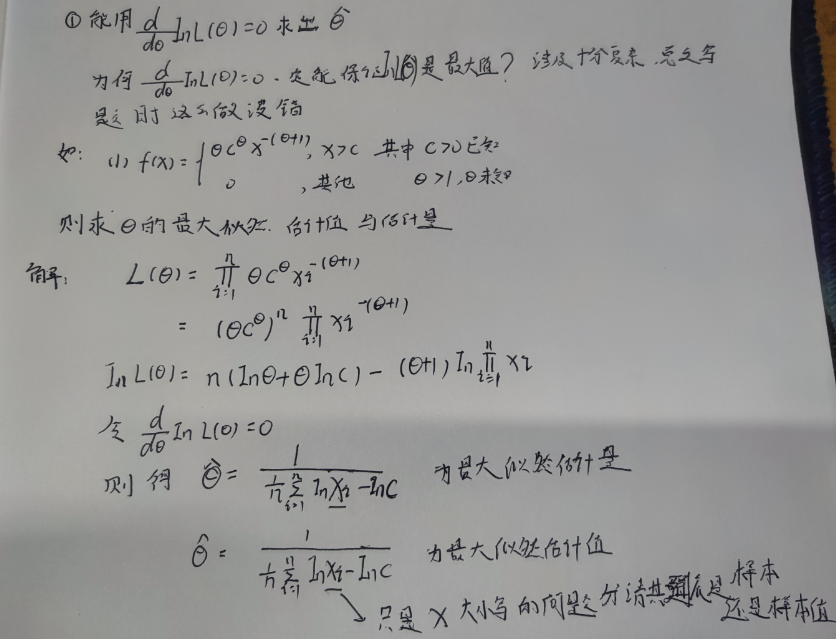 ① 能用 d/dθ InL(θ)=0 求出 θ̂
为何 d/dθ InL(θ)=0 定能保证InL(θ)是最大值? 涉及十分复杂
时这么做没错
如: (1) f(x)= { θc^θ x^-(θ+1), x>c 其中 c>0已知
0 , 其他 θ>1, θ未知
则求θ的最大似然 估计值与估计量
解: L(θ)= ∏_{i=1}^{n} θc^θ xi^-(θ+1)
= (θc^θ)^n ∏_{i=1}^{n} xi^-(θ+1)
In L(θ)= n(Inθ+θInc) - (θ+1) In ∏_{i=1}^{n} xi
令 d/dθ In L(θ)=0
则得 θ̂ = 1/(1/n ∑_{i=1}^{n} In Xi - Inc) 为最大似然估计量
θ̂ = 1/(1/n ∑_{i=1}^{n} In xi - Inc) 为最大似然估计值
只是 X 大小写的问题 分清其到底是样本
还是样本值